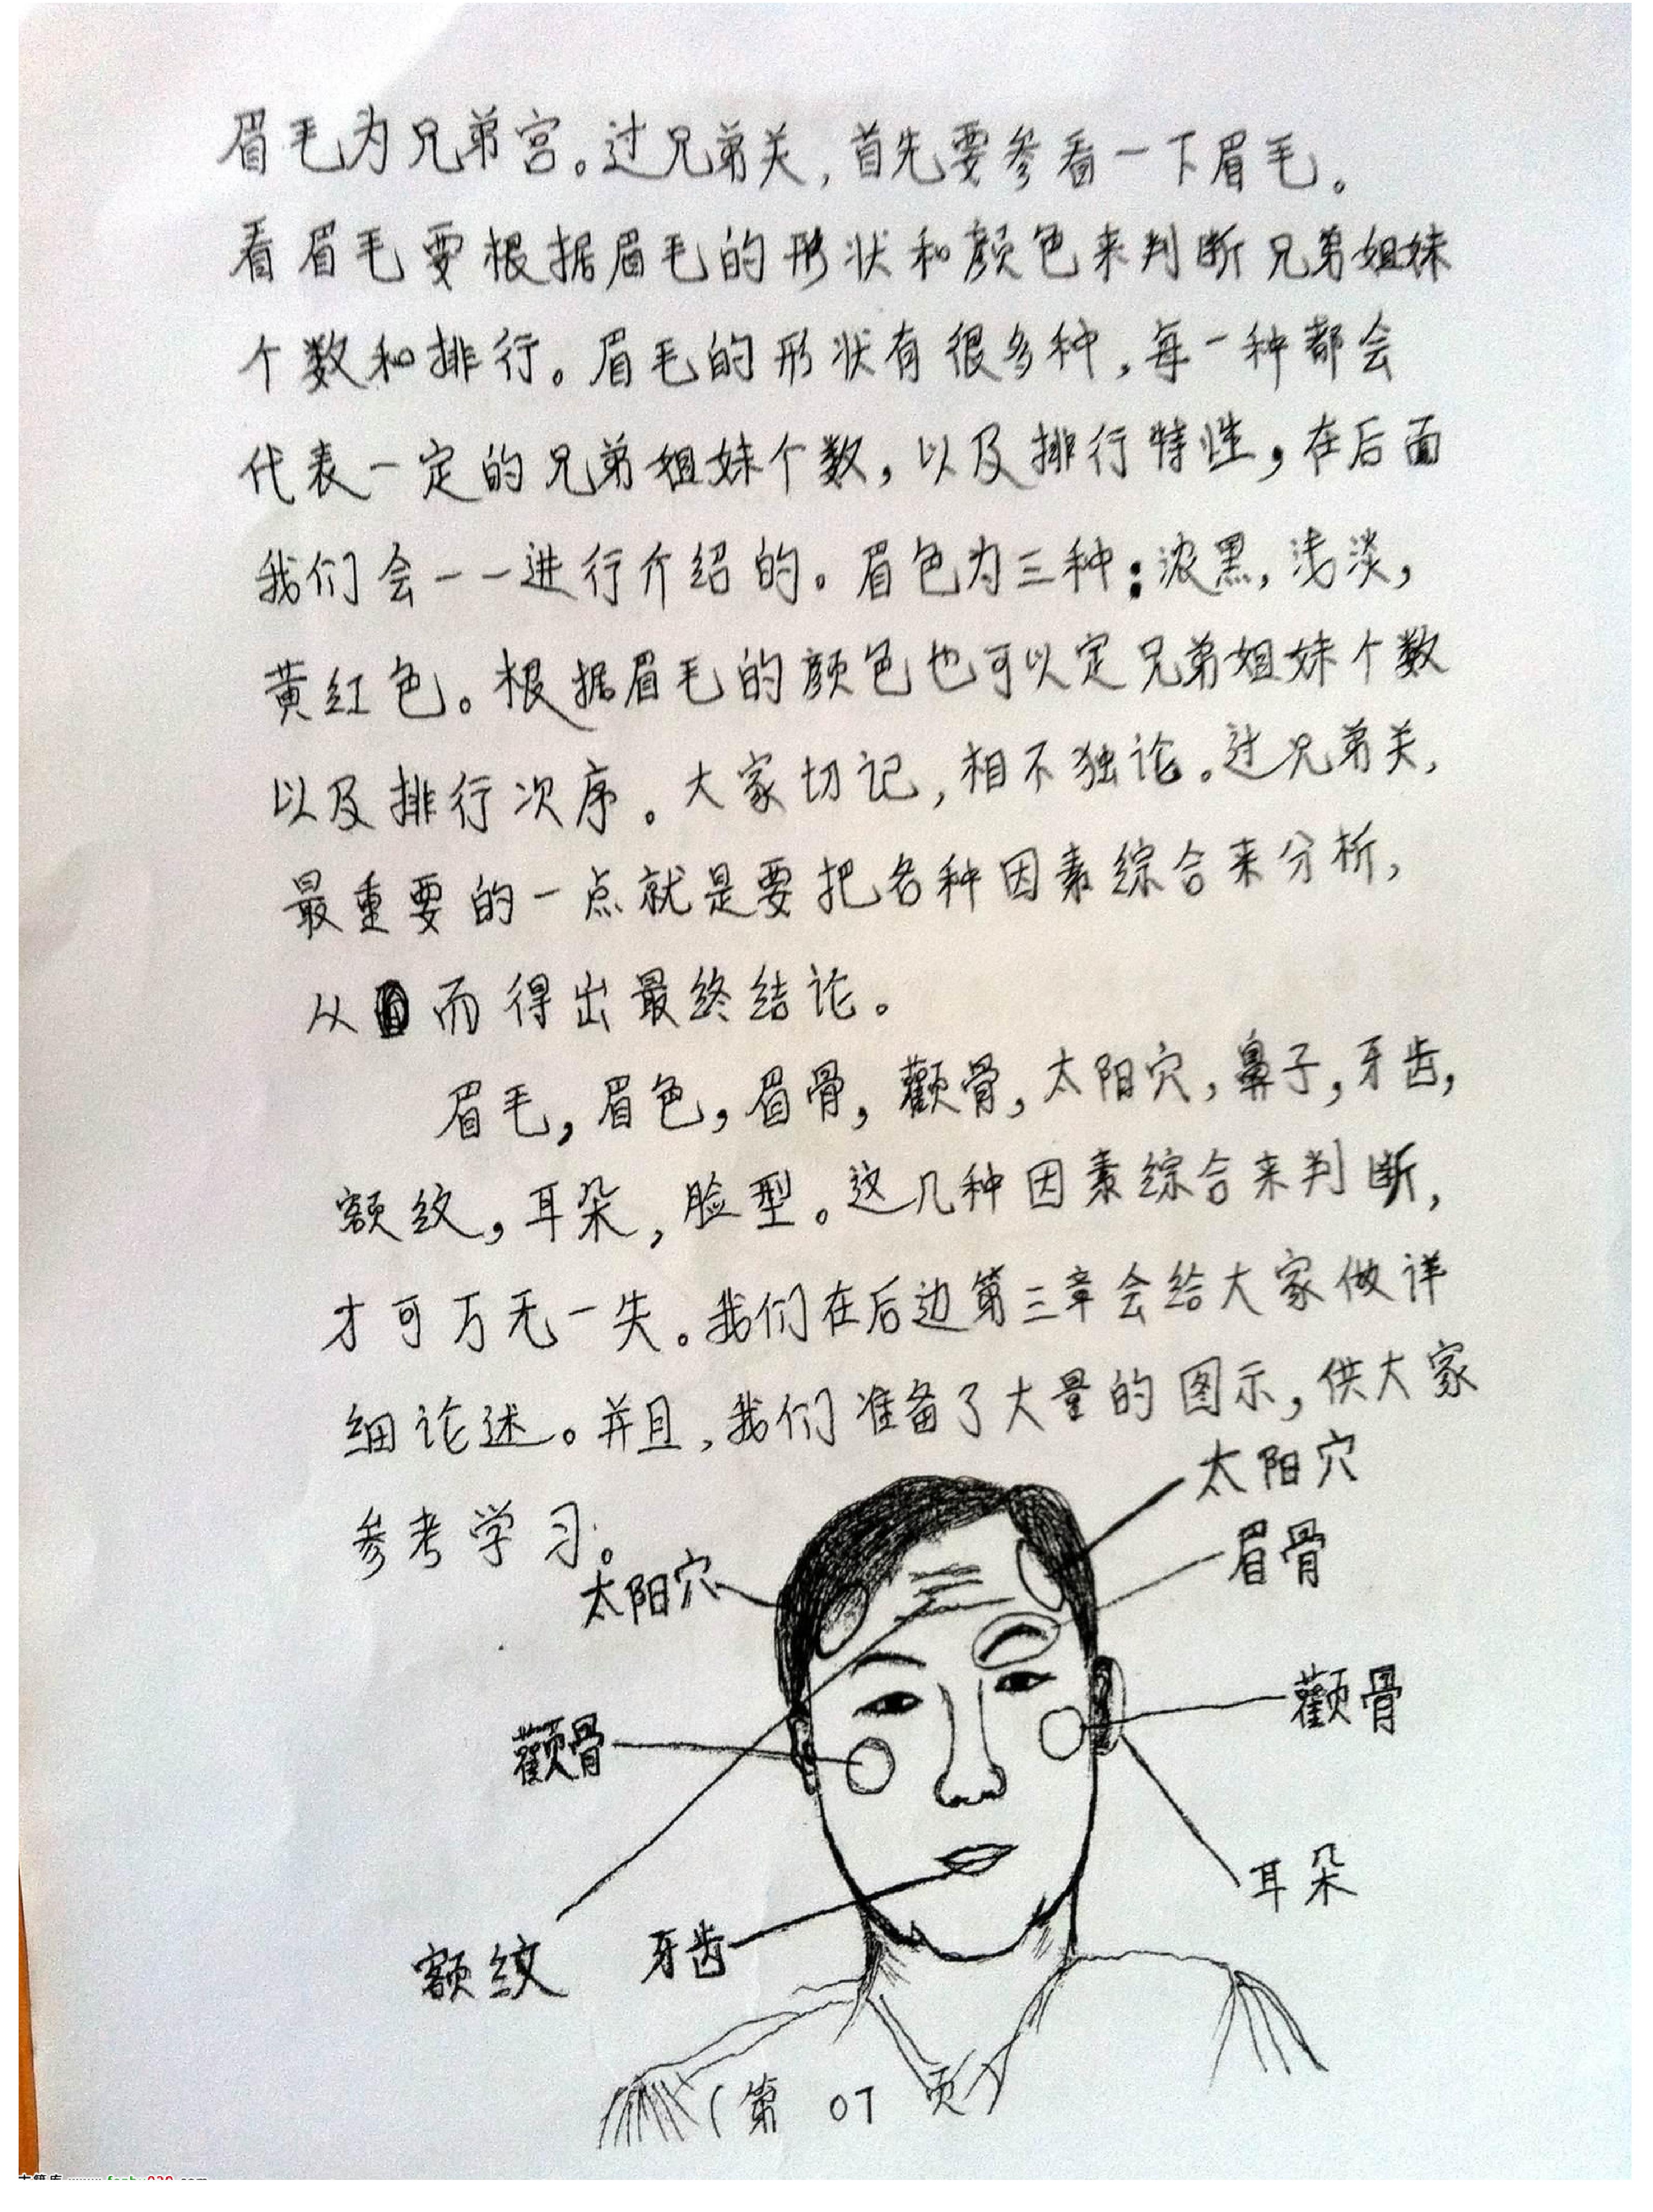 眉毛为兄弟宫。过兄弟关，首先要参看一下眉毛。
看眉毛要根据眉毛的形状和颜色来判断兄弟姐妹
个数和排行。眉毛的形状有很多种，每一种都会
代表一定的兄弟姐妹个数，以及排行特性，在后面
我们会一一进行介绍的。眉色为三种：浓黑，浅淡，
黄红色。根据眉毛的颜色也可以定兄弟姐妹个数
以及排行次序。大家切记，相不独论。过兄弟关，
最重要的一点就是要把各种因素综合来分析，
从而得出最终结论。
眉毛，眉色，眉骨，颧骨，太阳穴，鼻子，牙齿，
额纹，耳朵，脸型。这几种因素综合来判断，
才可万无一失。我们在后边第三章会给大家做详
细论述。并且，我们准备了大量的图示，供大家
参考学习。
太阳穴
眉骨
太阳穴
颧骨
颧骨
耳朵
牙齿
额纹
(第 07 页)